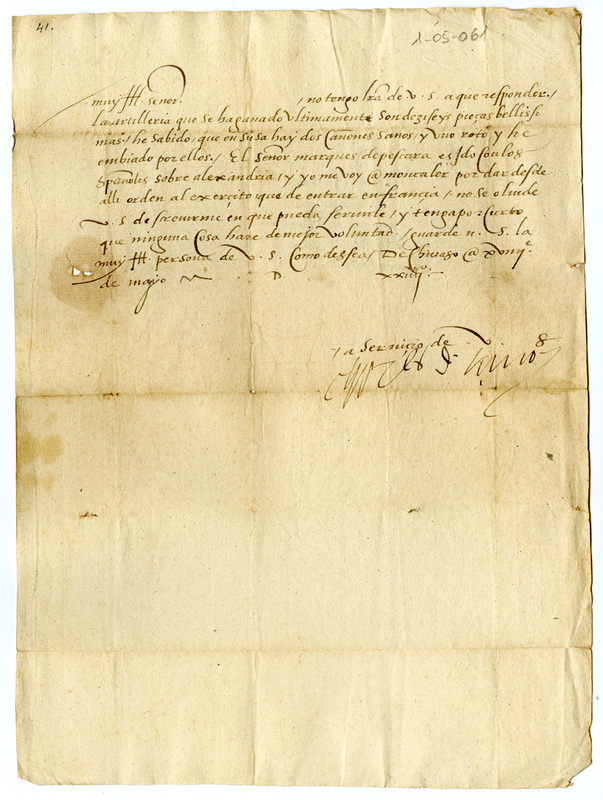 41.
1-05-061
muy Ill. señor. / no tengo lra de v. s. a que responder. /
La artilleria que se ha ganado ultimamente son deziseys pieças bellissi
mas / he sabido, que en susa hay dos cañones sanos, y uno roto y he
embiado por ellos / El señor marques de pescara es ydo con los
españoles sobre alexandria / y yo me voy @ moncaler por dar desde
alli orden al exercito que de entrar en francia / no se olvide
v. s. de screvirme en que pueda servirle / y tenga por cierto
que ninguna cosa hare de mejor voluntad. / guarde n. s. la
muy Ill. persona de v. s. como dessea / De @ xviij.
de mayo M D xxiiijº.
/ a servicio de